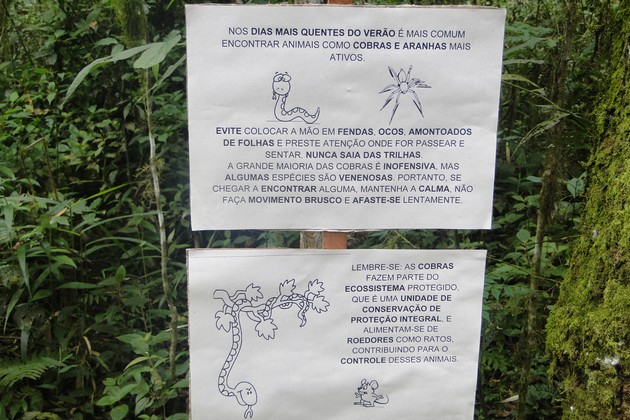 NOS DIAS MAIS QUENTES DO VERÃO É MAIS COMUM
ENCONTRAR ANIMAIS COMO COBRAS E ARANHAS MAIS
ATIVOS.
EVITE COLOCAR A MÃO EM FENDAS, OCOS, AMONTOADOS
DE FOLHAS E PRESTE ATENÇÃO ONDE FOR PASSEAR E
SENTAR. NUNCA SAIA DAS TRILHAS.
A GRANDE MAIORIA DAS COBRAS É INOFENSIVA, MAS
ALGUMAS ESPÉCIES SÃO VENENOSAS. PORTANTO, SE
CHEGAR A ENCONTRAR ALGUMA, MANTENHA A CALMA, NÃO
FAÇA MOVIMENTO BRUSCO E AFASTE-SE LENTAMENTE.
LEMBRE-SE: AS COBRAS
FAZEM PARTE DO
ECOSSISTEMA PROTEGIDO,
QUE É UMA UNIDADE DE
CONSERVAÇÃO DE
PROTEÇÃO INTEGRAL, E
ALIMENTAM-SE DE
ROEDORES COMO RATOS,
CONTRIBUINDO PARA O
CONTROLE DESSES ANIMAIS.